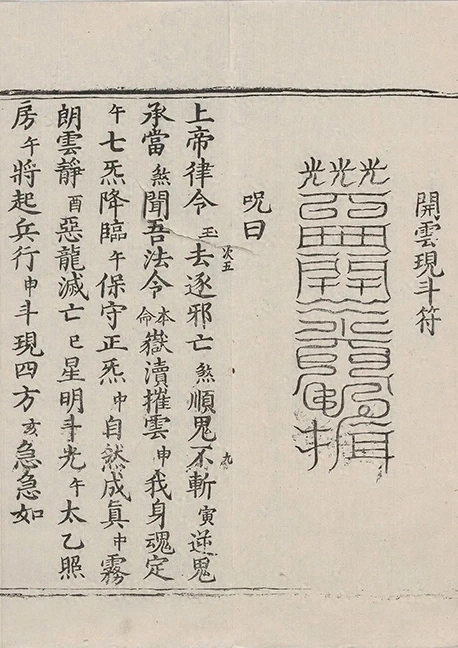 開雲現斗符
光光光
呪曰
上帝律令玉去逐邪亡煞順鬼不斬寅逆鬼
次五
九
承當煞聞吾法令本命嶽瀆摧雲申我身魂定
午七炁降臨午保守正炁申自然成真申霧
朗雲靜酉惡龍滅亡巳星明斗光午太乙照
房午將起兵行申斗現四方亥急急如